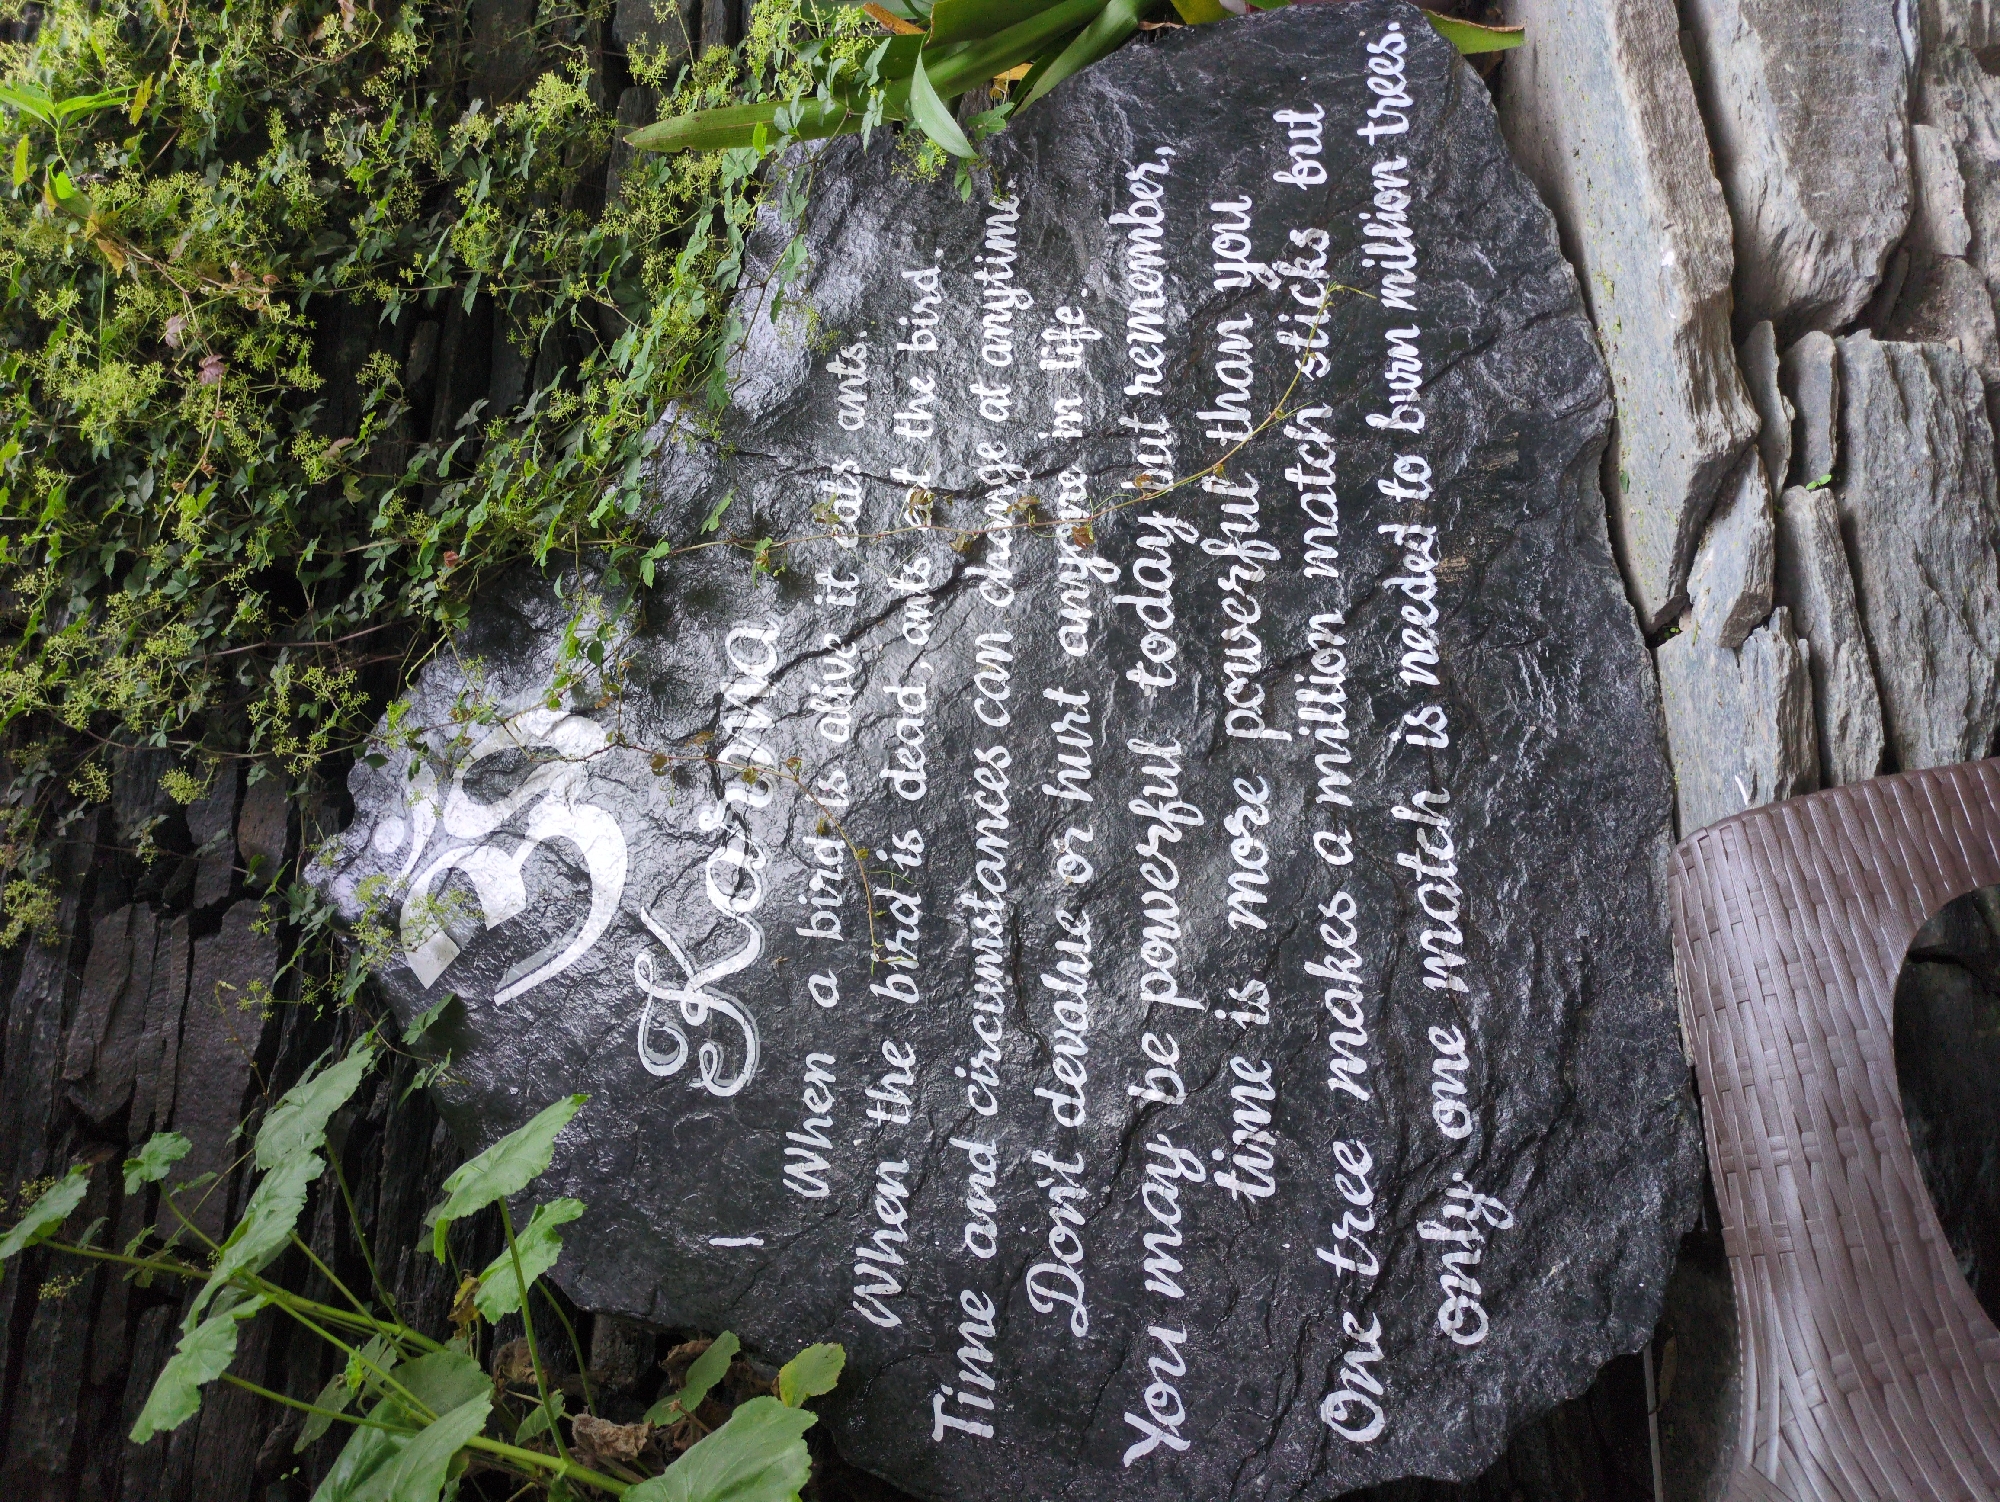 ॐ
Karma
When a bird is alive, it eats ants.
When the bird is dead, ants eat the bird.
Time and circumstances can change at anytime.
Don't devalue or hurt anyone in life.
You may be powerful today but remember,
time is more powerful than you
One tree makes a million match sticks but
only one match is needed to burn million trees.